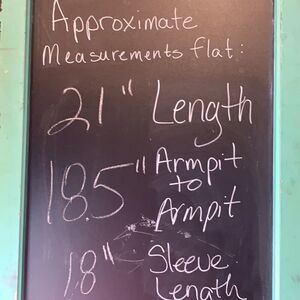 Approximate
Measurements flat:
21" Length
18.5" Armpit
to
Armpit
18" Sleeve
Length